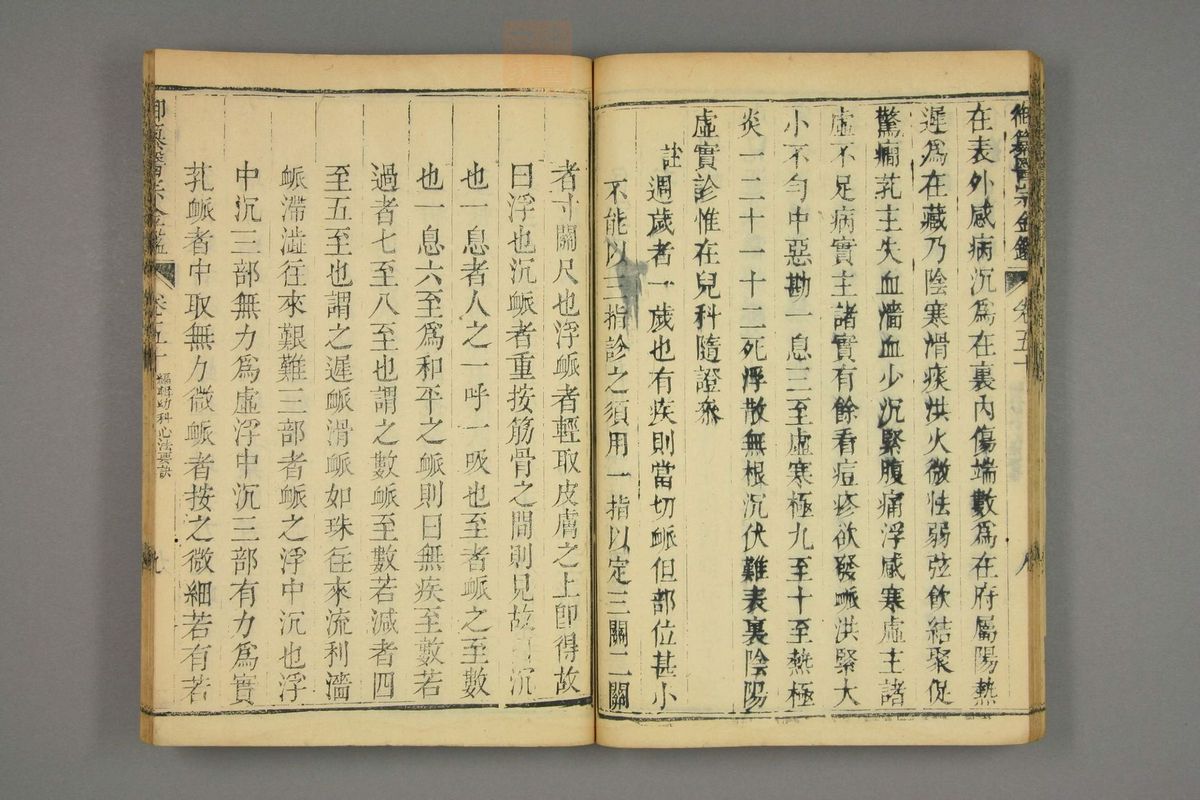 御纂醫宗金鑑 卷五十 八
在表外感病沉為在裏內傷端數為在府屬陽熱
遲為在藏乃陰寒滑痰洪火微怯弱弦飲結聚促
驚癇芤主失血濇血少沉緊腹痛浮感寒虛主諸
虛不足病實主諸實有餘看痘疹欲發脈洪緊大
小不勻中惡勘一息三至虛寒極九至十至熱極
炎一二十一十二死浮散無根沉伏難表裏陰陽
虛實診惟在兒科隨證叅
註週歲者一歲也有疾則當切脈但部位甚小
不能以三指診之須用一指以定三關二關
者寸關尺也浮脈者輕取皮膚之上卽得故
曰浮也沉脈者重按筋骨之間則見故曰沉
也一息者人之一呼一吸也至者脈之至數
也一息六至爲和平之脈則曰無疾至數若
過者七至八至也謂之數脈至數若減者四
至五至也謂之遲脈滑脈如珠往來流利濇
脈滯澁往來艱難三部者脈之浮中沉也浮
中沉三部無力爲虛浮中沉三部有力爲實
芤脈者中取無力微脈者按之微細若有若
御纂醫宗金鑑 卷五十 編輯幼科心法要訣 九